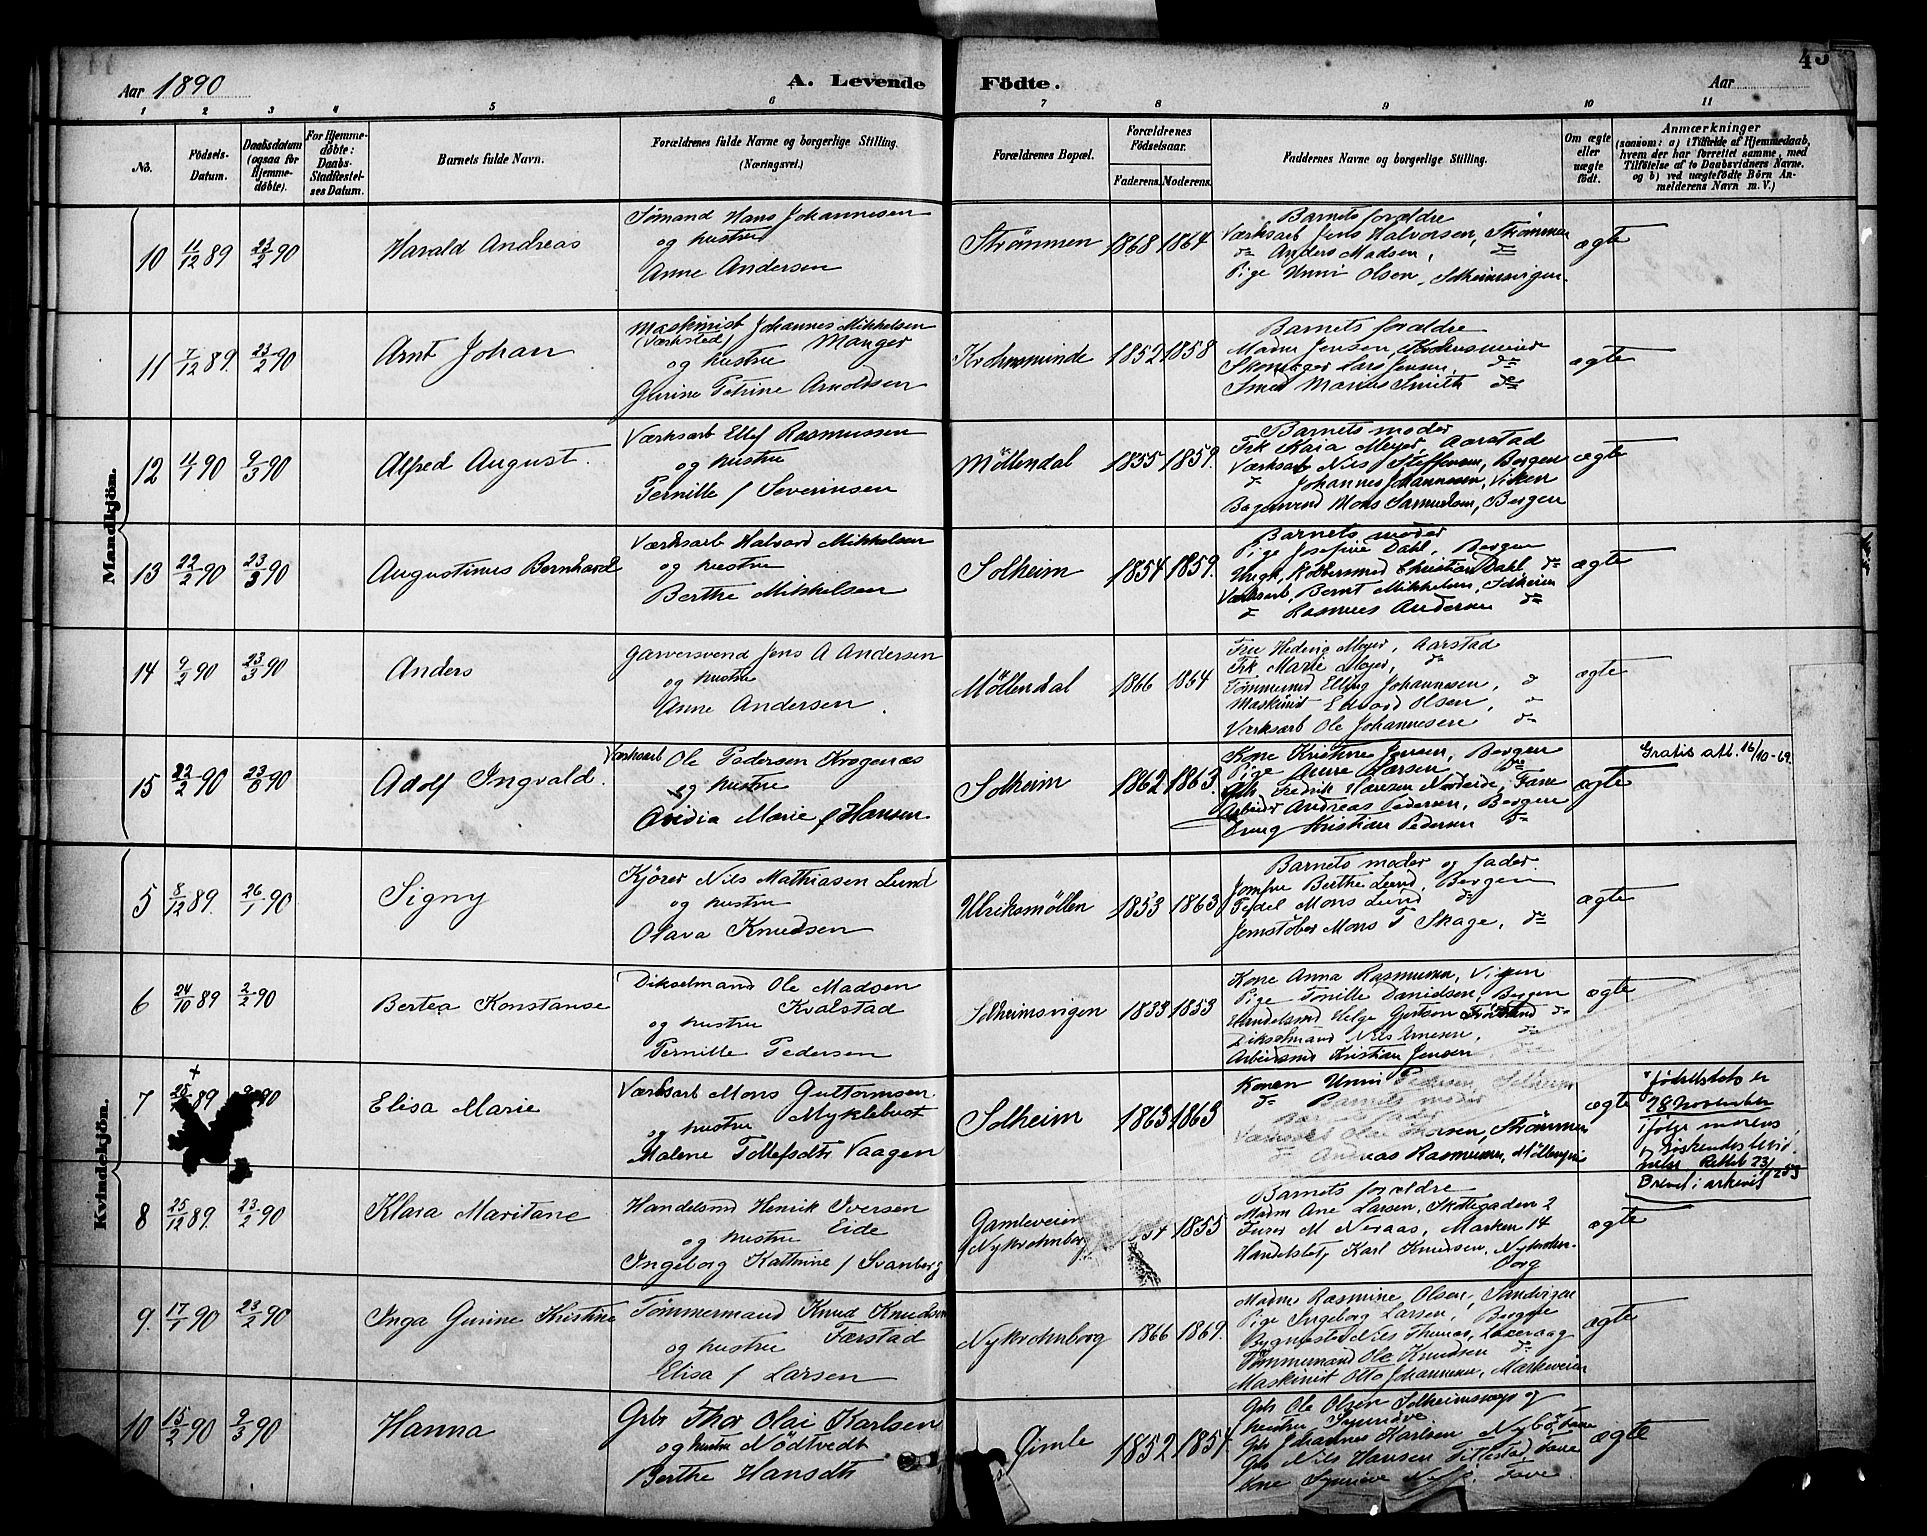 Aar 1890
A. Levende
Födte.
Aar
43
1 2 3 4 5 6 7 8 9 10 11
No.
Födsels-Datum.
Daabsdatum (ogsaa for Hjemmedöbte).
For Hjemmedöbte: Daabs-Stadfæstelses Datum.
Barnets fulde Navn.
Forældrenes fulde Navne og borgerlige Stilling. (Næringsvei.)
Forældrenes Bopæl.
Forældrenes Födselsaar.
Faderens. Moderens.
Faddernes Navne og borgerlige Stilling.
Om ægte eller uægte födt.
Anmærkninger
(saasom: a) i Tilfælde af Hjemmedaab, hvem der har forrettet samme, med Tilföielse af to Daabsvidners Navne. og b) ved uægtefödte Börn Anmelderens Navn m. V.)
Mandkjön.
10 11/12 89 23/2 90 Harald Andreas
Sømand Hans Johannesen
og hustru
Anne Andersen
Strømmen 1868 1864
Barnets forældre
Værksarb Jens Halvorsen, Strømmen
do Anders Madsen, do
Pige Unni Olsen, Solheimsvigen
ægte
11 7/12 89. 23/2 90 Arnt Johan
Maskinist Johannes Mikkelsen
(Værksted) Manger
og hustru
Gurine Petrine Arnoldsen
Krohnsminde 1852 1858
Barnets forældre
Madm Jensen, Krohnsminde
Skomager Lars Jensen, do
Smed Marius Smith do
ægte
12 4/1 90 9/3 90 Alfred August.
Værksarb Ellef Rasmussen
og hustru
Pernille f Severinsen
Möllendal 1855 1859.
Barnets moder
Frk Kaia Meyer, Aarstad
Værksarb Nils Steffensen, Bergen
do Johannes Johannesen, Viken
Mons Samuelsen, Bergen
ægte
13 22/2 90 23/3 90 Augustinus Bernhard
Værksarb Halvard Mikkelsen
og hustru
Berthe Mikkelsen
Solheim 1854 1859.
Barnets moder
Pige Josefine Dahl, Bergen
Ungk, Kobbersmed Christian Dahl do
Værksarb, Bernt Mikkelsen, Solheim
do Rasmus Andersen do
ægte
14 9/2 90 23/3 90 Anders
Garversvend Jens A Andersen
og hustru
Anne Andersen.
Möllendal 1866 1854
Fru Hedvig Meyer, Aarstad
Frk Marie Meyer, do
Tømmermd Elling Johannesen, do
Maskinist Edvard Olsen, do
Værksarb Ole Johannesen do
ægte
15 22/2 90 23/8 90 Adolf Ingvald.
Værksarb Ole Pedersen Krogenæs
og hustru
Ovidia Marie f Hansen
Solheim 1862 1863.
Kone Kristine Jensen, Bergen
Pige Anne Larsen, do
Gbr Fredrik Hansen Nordeide, Fane
Arbeider Andreas Pedersen, Bergen
Kristian Pedersen do
ægte
Gratis att. 16/10-69.
Kvindekjön.
5 8/12 89. 26/1 90 Signy
Kjører Nils Mathiasen Lund
og hustru
Olava Knudsen
Ulriksmöllen 1853 1863
Barnets moder og fader
Jomfru Berthe Lund, Bergen
Pedel Mons Lund do
Jernstöber Mons T Skage, do
ægte
6 24/10 89 2/2 90 Bertea Konstanse
Dikselmand Ole Madsen
Kvalstad
og hustru
Pernille Pedersen
Solheimsvigen 1833 1853
Kone Anna Rasmussen, Vigen
Pige Tomille Danielsen, Bergen
Handelsmd Helge Gjertsen do
Dikselmand Nils Arnesen,
Arbeidsmd Kristian Jensen
ægte
7 89 90 Elisa Marie
Værksarb Mons Guttormsen
Myklebust
og hustru
Malene Tollefsdtr Vaagen
Solheim 1863 1863
Konen Unni Pedersen, Solheim
do Barnets moder
Barnets fader
Værksarb Olai Larsen, Strømmen
do Andreas Rasmussen, Möllendal
ægte
Födselsdato er
28 november
ifølge morens
Rettet 23/2 53
Brevet i arkivet
8 25/12 89. 23/2 90 Klara Maritane
Handelsmd Henrik Iversen
Eide
og hustru
Ingeborg Kathrine f Svanberg
Gamleveien
Nykrohnborg 1855
Barnets forældre
Madm Ane Larsen, Skottegaden 2
M Neraas, Marken 14
Handelsbetj Karl Knudsen, Nykrohnborg
ægte
9. 17/1 90 23/2 90 Inga Gurine Kristine
Tömmermand Knud Knudsen
Færstad
og hustru
Elisa f Larsen
Nykrohnborg 1866 1869.
Madm Rasmine Olsen, Sandvigen
Pige Ingeborg Larsen, Bergen
Bygmester Nils Thunes, Laxevaag
Tömmermand Ole Knudsen do
Maskinist Otto Johannesen, Markeveien
ægte
10 15/2 90 9/3 90 Hanna
Gbr Thor Olai Karlsen
og hustru Nödtvedt
Berthe Hansdtr
Øimle 1852 1854.
Gbr Ole Olsen Solheimsvig og
hustru Synneve
Gbr Johannes Karlsen Nyböe Fane
Gbr Nils Hansen Titlestad Fane
Kone Synneve Fane
ægte